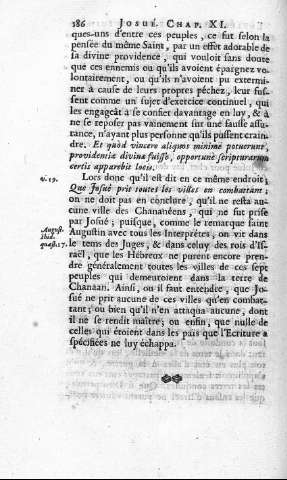 186 JOSUÉ. CHAP. XI.
ques-uns d'entre ces peuples, ce fut selon la
pensée du même Saint, par un effet adorable de
sa divine providence, qui vouloit sans doute
que ces ennemis ou qu'ils avoient épargnez vo-
lontairement, ou qu'ils n'avoient pu extermi-
ner à cause de leurs propres péchez, leur fus-
sent comme un sujet d'exercice continuel, qui
les engageât à se confier davantage en luy, & à
ne se reposer pas vainement sur une fausse assu-
rance, n'ayant plus personne qu'ils pussent crain-
dre. Et quòd vincere aliquos minimè potuerunt,
providentiæ divinæ fuisse, opportunè scripturarum
certis approbabit locis.
v. 19. Lors donc qu'il est dit en ce même endroit;
Que Josué prit toutes les villes en combattant;
on ne doit pas en conclure, qu'il ne resta au-
cune ville des Chananéens, qui ne fut prise
par Josué; puisque, comme le remarque saint
August.
Ibid.
quæst. 17.
Augustin avec tous les Interprétes, on vit dans
le tems des Juges, & dans celuy des rois d'Is-
raël, que les Hébreux ne purent encore pren-
dre généralement toutes les villes de ces sept
peuples qui demeuroient dans la terre de
Chanaan. Ainsi, ou il faut entendre, que Jo-
sué ne prit aucune de ces villes qu'en combat-
tant; ou bien qu'il n'en attaqua aucune, dont
il ne se rendît maître; ou enfin, que nulle de
celles qui étoient dans les païs que l'Ecriture a
spécifiées ne luy échappa.